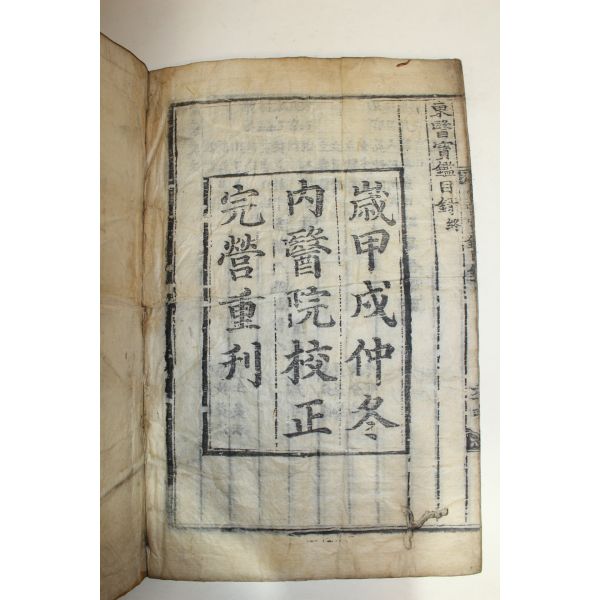 東醫寳鑑目録 終
歲甲戌仲冬
內醫院校正
完營重刋